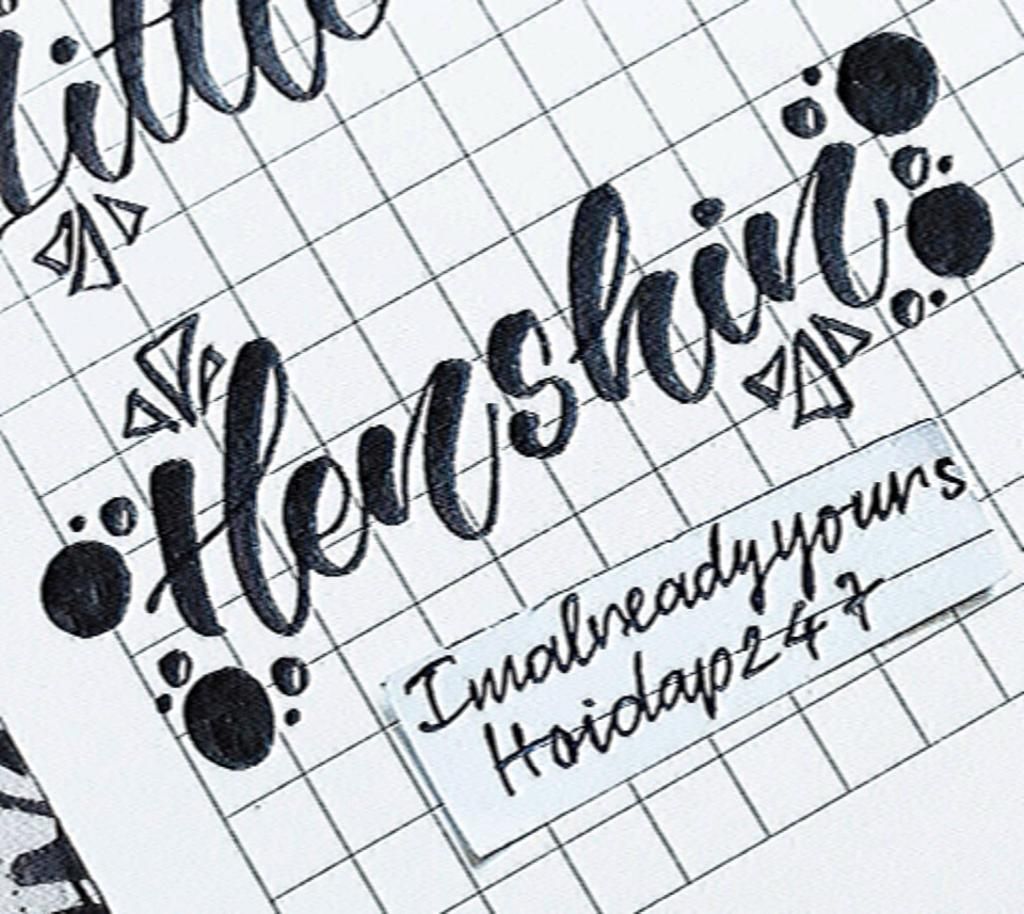 Henshin
Imalreadyyours
Hoidap247